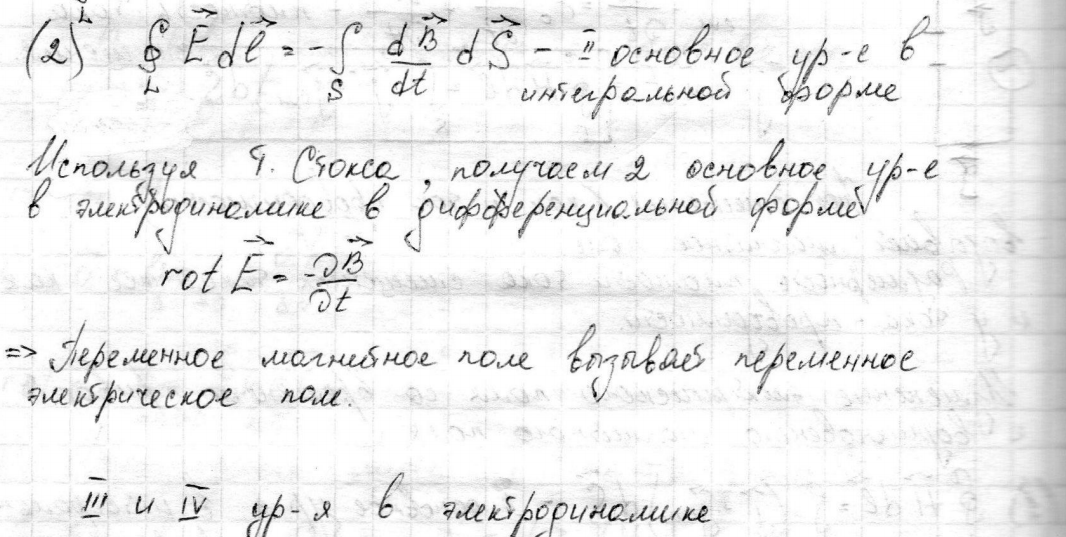 (2) ∮_L E⃗ dl⃗ = - ∫_S dB⃗/dt dS⃗ - II основное ур-е в
интегральной форме
Используя т. Стокса, получаем 2 основное ур-е
в электродинамике в дифференциальной форме
rot E⃗ = -∂B⃗/∂t
=> Переменное магнитное поле вызывает переменное
электрическое поле.
III и IV ур-я в электродинамике